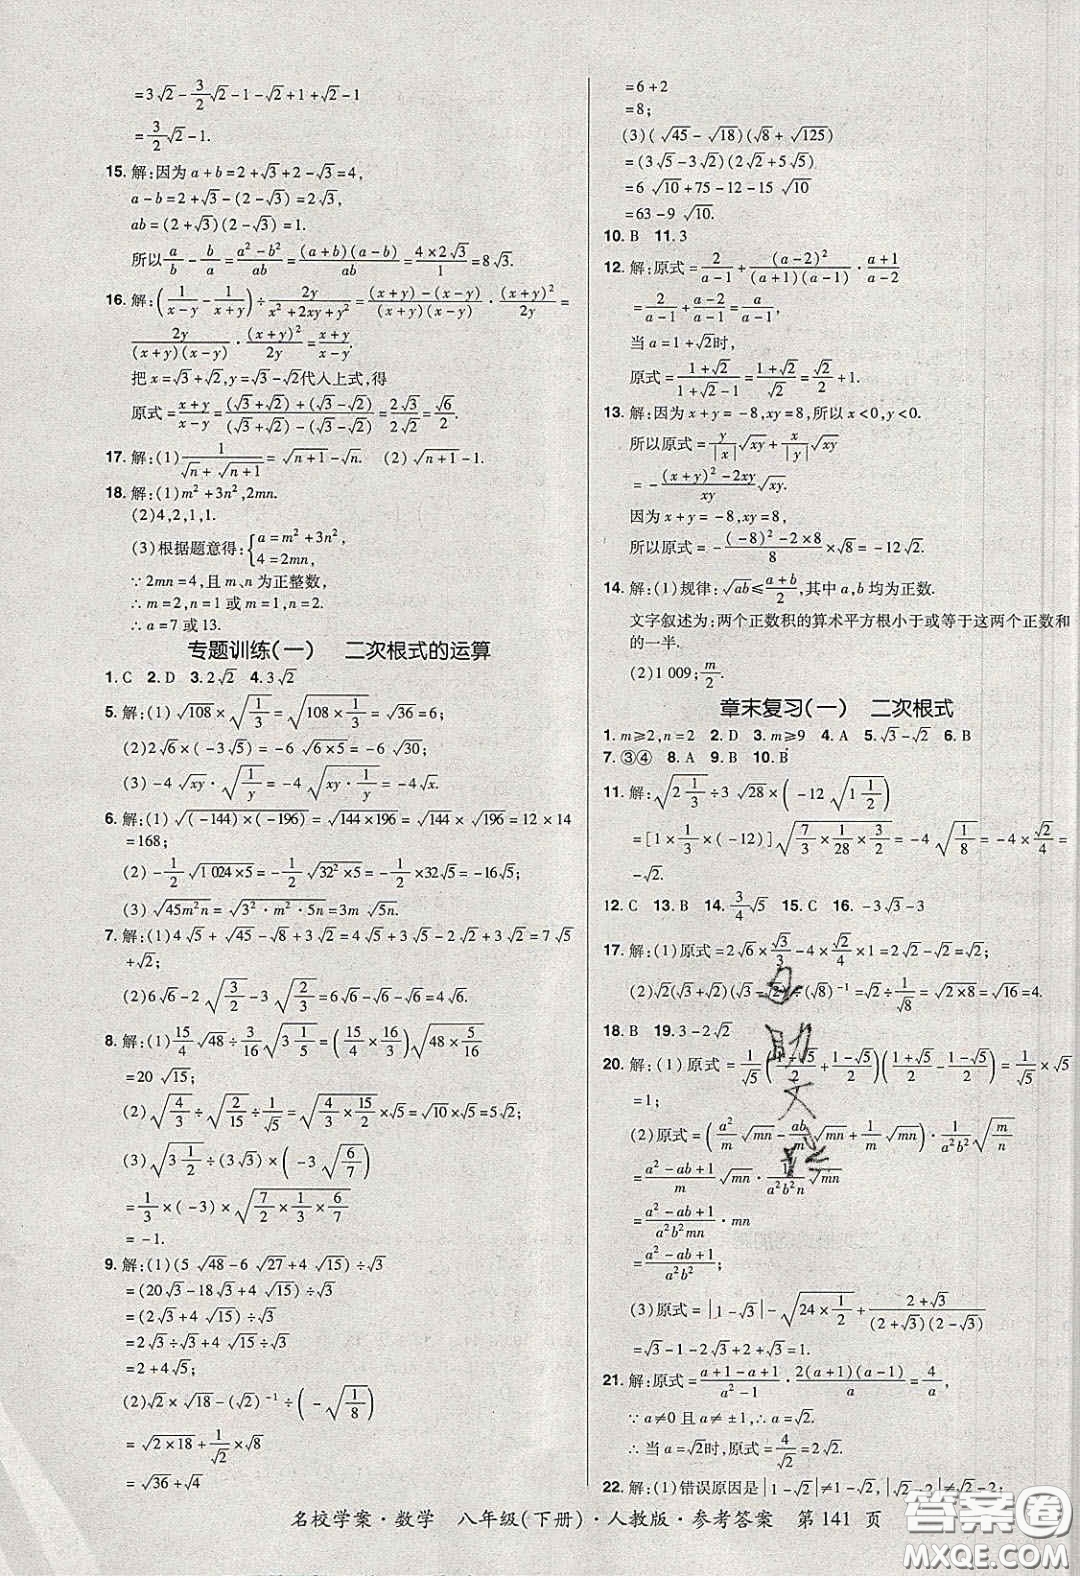 =3√2-3/2√2-1-√2+1+√2-1
=3/2√2-1.
15. 解:因为a+b=2+√3+2-√3=4,
a-b=2+√3-(2-√3)=2√3,
ab=(2+√3)(2-√3)=1.
所以a/b-b/a=(a²-b²)/ab=(a+b)(a-b)/ab=(4×2√3)/1=8√3.
16. 解:(1/(x-y)-1/(x+y))÷2y/(x²+2xy+y²)=((x+y)-(x-y))/((x+y)(x-y))·(x+y)²/2y=
2y/((x+y)(x-y))·(x+y)²/2y=(x+y)/(x-y).
把x=√3+√2,y=√3-√2代入上式,得
原式=(x+y)/(x-y)=((√3+√2)+(√3-√2))/((√3+√2)-(√3-√2))=2√3/2√2=√6/2.
17. 解:(1)1/(√n+√(n+1))=√(n+1)-√n. (2)√(n+1)-√n.
18. 解:(1)m²+3n²,2mn.
(2)4,2,1,1.
(3)根据题意得:{a=m²+3n², 4=2mn,
∵2mn=4,且m、n为正整数,
∴m=2,n=1或m=1,n=2.
∴a=7或13.
专题训练(一) 二次根式的运算
1. C 2. D 3. 2√2 4. 3√2
5. 解:(1)√108×√(1/3)=√(108×1/3)=√36=6;
(2)2√6×(-3√5)=-6√(6×5)=-6√30;
(3)-4√xy·√(1/x)=-4√(xy·1/x)=-4√y.
6. 解:(1)√((-144)×(-196))=√(144×196)=√144×√196=12×14
=168;
(2)-1/2√(1 024×5)=-1/2√(32²×5)=-1/2×32√5=-16√5;
(3)√(45m²n)=√(3²·m²·5n)=3m√(5n).
7. 解:(1)4√5+√45-√8+3√2=4√5+3√5-2√2+3√2=7√5
+√2;
(2)6√6-2√(3/2)-3√(2/3)=6√6-√6-√6=4√6.
8. 解:(1)15/4√48÷3/16√(3 1/5)=(15/4×16/3)√(48×5/16)
=20√15;
(2)√(4/3)÷√(2/15)÷1/√5=√(4/3×15/2)×√5=√10×√5=5√2;
(3)√(3 1/2)÷(3√3)×(-3√(6/7))
=1/3×(-3)×√(7/2×1/3×6/7)
=-1.
9. 解:(1)(5√48-6√27+4√15)÷√3
=(20√3-18√3+4√15)÷√3
=(2√3+4√15)÷√3
=2√3÷√3+4√15÷√3
=2+4√5;
(2)√2×√18-(√2)⁻¹÷(-√(1/8))
=√(2×18)+1/√2×√8
=√36+√4
=6+2
=8;
(3)(√45-√18)(√8+√125)
=(3√5-3√2)(2√2+5√5)
=6√10+75-12-15√10
=63-9√10.
10. B 11. 3
12. 解:原式=2/(a-1)+(a-2)²/((a+1)(a-1))·(a+1)/(a-2)
=2/(a-1)+(a-2)/(a-1)=a/(a-1),
当a=1+√2时,
原式=(1+√2)/(1+√2-1)=(1+√2)/√2=√2/2+1.
13. 解:因为x+y=-8,xy=8,所以x<0,y<0.
所以原式=y/|x|√xy+x/|y|√xy
=-((x+y)²-2xy)/xy√xy.
因为x+y=-8,xy=8,
所以原式=-((-8)²-2×8)/8×√8=-12√2.
14. 解:(1)规律:√ab≤(a+b)/2,其中a,b均为正数.
文字叙述为:两个正数积的算术平方根小于或等于这两个正数和
的一半.
(2)1 009;m/2.
章末复习(一) 二次根式
1. m≥2,n=2 2. D 3. m≥9 4. A 5. √3-√2 6. B
7. ③④ 8. A 9. B 10. B
11. 解:√(2 1/3)÷3√28×(-12√(1 1/2))
=[1×1/3×(-12)]√(7/3×1/28×3/2)=-4√(1/8)=-4×√2/4=
-√2.
12. C 13. B 14. 3/4√5 15. C 16. -3√3-3
17. 解:(1)原式=2√6×√3/3-4×√2/4×1=2√2-√2=√2;
(2)√2(√3+√2)(√3-√2)÷(√8)⁻¹=√2÷1/√8=√(2×8)=√16=4.
18. B 19. 3-2√2
20. 解:(1)原式=1/√5((1+√5)/2+(1-√5)/2)((1+√5)/2-(1-√5)/2)=1/√5×√5
=1;
(2)原式=(a²/m√mn-ab/m√mn+1/m√mn)·1/(a²b²)√(m/n)
=(a²-ab+1)/m√mn·1/(a²b²n)√mn
=(a²-ab+1)/(a²b²mn)·mn
=(a²-ab+1)/(a²b²);
(3)原式=|1-√3|-√(24×1/2)+(2+√3)/((2+√3)(2-√3))
=√3-1-2√3+2+√3=1.
21. 解:原式=(a+1-a+1)/(a²-1)·2(a+1)(a-1)/a=4/a,
∵a≠0且a≠±1,∴a=√2.
∴当a=√2时,原式=4/√2=2√2.
22. 解:(1)错误原因是|1-√2|≠1-√2,|√2-2|≠√2-2;
名校学案·数学 八年级(下册)·人教版·参考答案 第141页
答案圈
MXQE.COM